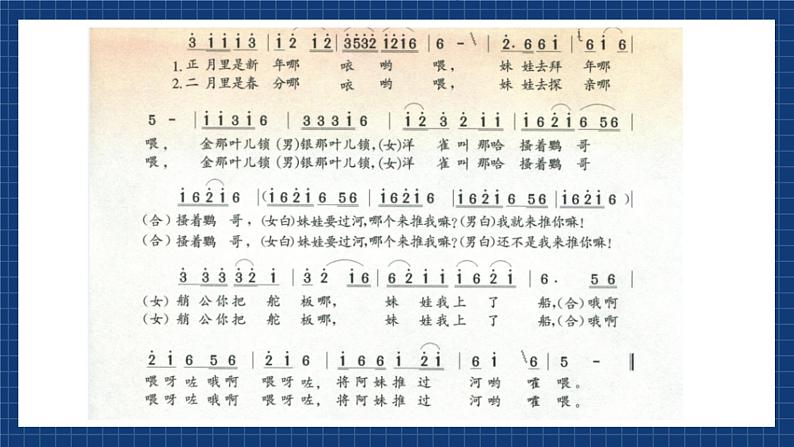 3 i i i 3 | i 2 i 2 i | 3532 i2i6 | 6 - | 2. 6 6 i | 6 i 6 5 6 |
1.正 月里是新 年哪 咴 哟 喂， 妹 娃去拜 年哪
2.二 月里是春 分哪 咴 哟 喂， 妹 娃去探 亲哪
5 - | i i 3 i 6 | 3 3 3 i 6 | i 2 3 2 i i | i 6 2 i 6 56 |
喂， 金那叶儿锁 (男)银那叶儿锁,(女)洋 雀 叫 那哈 搔着鹦 哥
喂， 金那叶儿锁 (男)银那叶儿锁,(女)洋 雀 叫 那哈 搔着鹦 哥
i 6 2 i 6 | (i 6 2 i 6 56 | i 6 2 i 6 | i 6 2 i 6 56 | i 6 2 i 6 ) |
(合)搔着鹦 哥，(女白)妹娃要过河,哪个来推我嘛?(男白)我就来推你嘛!
(合)搔着鹦 哥，(女白)妹娃要过河,哪个来推我嘛?(男白)还不是我来推你嘛!
3 3 3 3 2 i | 3 i 6 | i 6 i 2 i | 2 i 6 i 2 i | 6. 5 6 |
(女)艄 公你把 舵 板哪， 妹 娃我上 了 船，(合)哦啊
(女)艄 公你把 舵 板哪， 妹 娃我上 了 船，(合)哦啊
2 i 6 5 6 | 2 i 6 | i 6 6 i 2 i | 6 i 6 | 5 - ‖
喂 呀 咗 哦啊 喂 呀 咗，将 阿妹推 过 河哟 嚯 喂。
喂 呀 咗 哦啊 喂 呀 咗，将 阿妹推 过 河哟 嚯 喂。